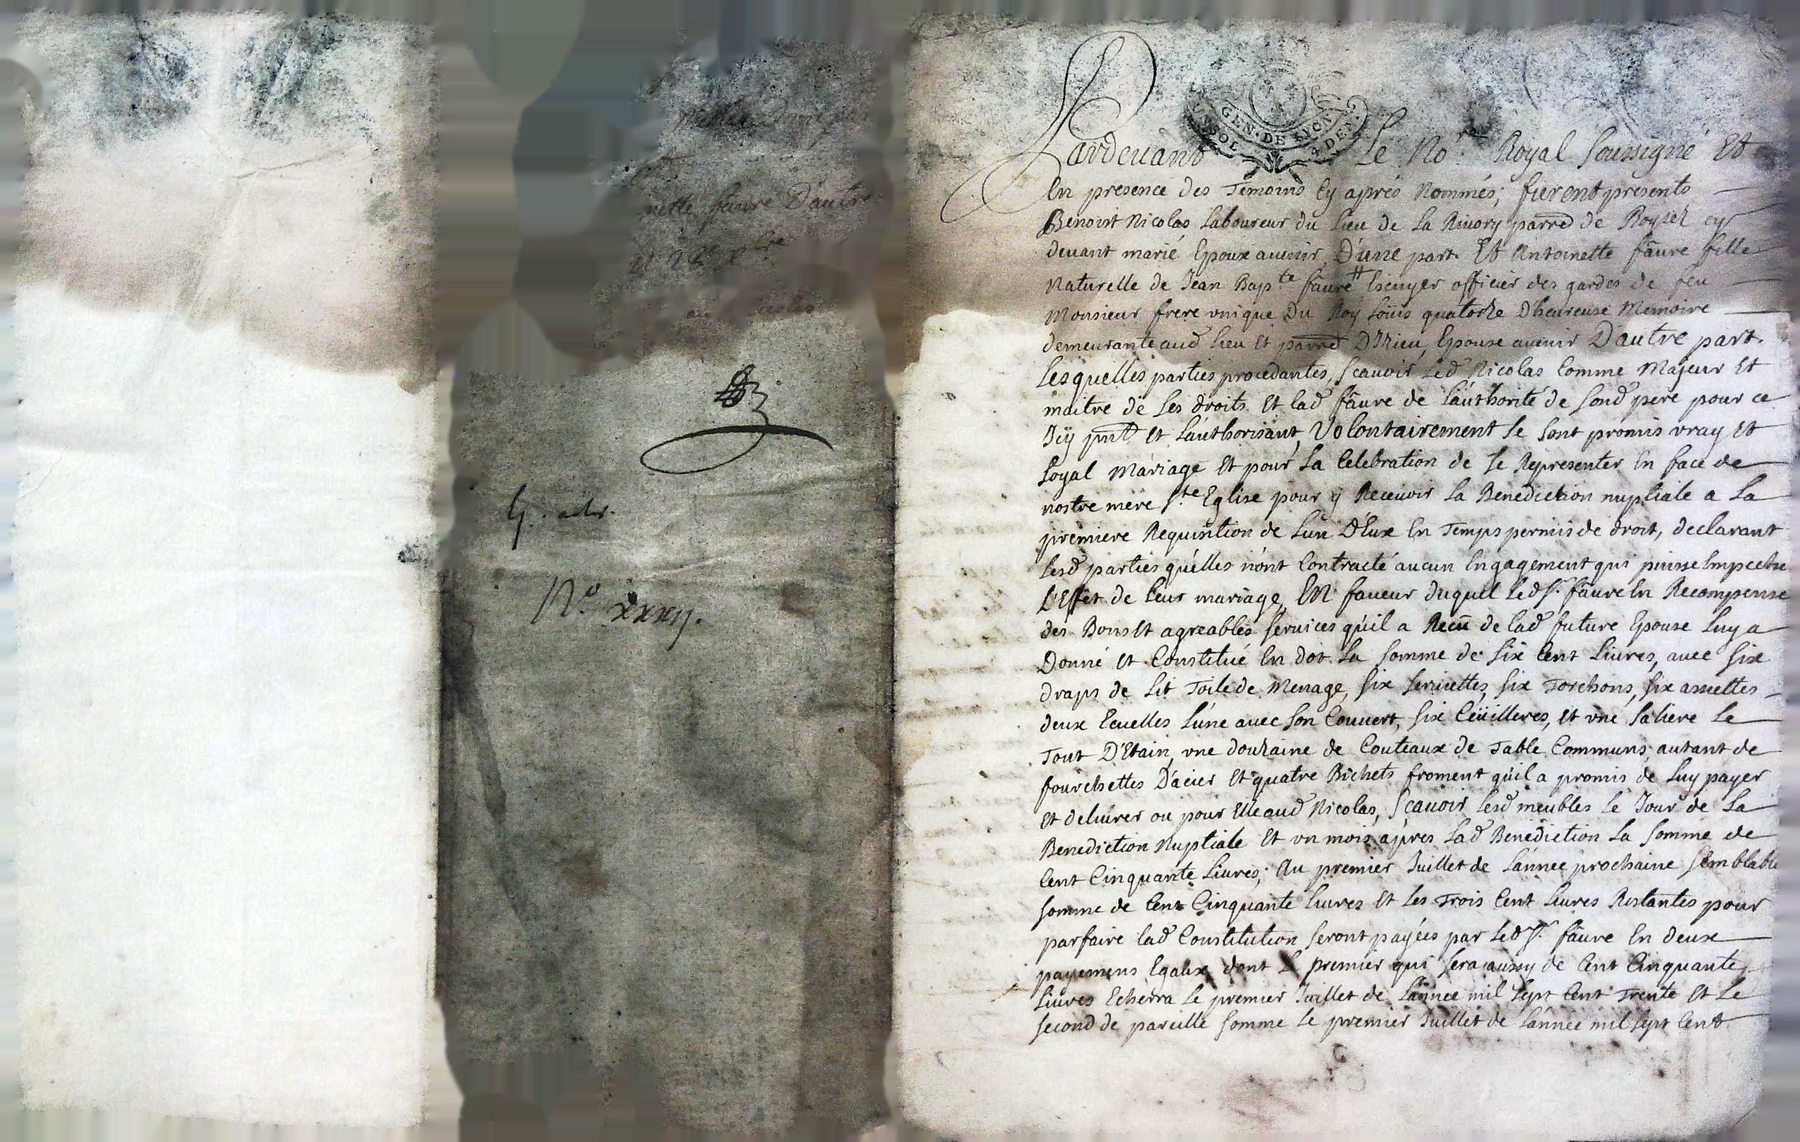 nette faure D'autre
G. adr.
N.º xxxij.
GEN. DE LYON
UN SOL 4 DEN.
Pardeuant Le No.re Royal Soussigné Et
En presence des Temoins Cy aprés Nommés; furent presents
Benoist Nicolas Laboureur du Lieu de La Riuory parr̃e de Roysel cy
deuant marié Epoux auenir D'une part Et Antoinette faure fille
Naturelle de Jean Bap.te faure Escuyer officier des gardes de feu
Monsieur frere vnique Du Roy Loüis quatorze D'heureuse Memoire
demeurante aud Lieu Et parr̃e D'Irieu, Epouse auenir D'autre part.
Lesquelles parties procedantes, Scauoir Led Nicolas Comme Majeur Et
maitre de Ses droits. Et Lad faure de L'authorité de Sond pere pour ce
Icy pnt Et L'authorisant, Volontairement Se Sont promis vray Et
Loyal mariage Et pour La Celebration de Se Representer En face de
nostre mere S.te Eglise pour y Receuoir La Benediction nuptiale a La
premiere Requisition de L'un D'Eux En Temps permis de droit, declarant
Lesd parties qu'elles n'ont Contracté aucun Engagement qui puisse Empecher
L'Effet de Leur mariage, EN faueur duquel Led S.r faure En Recompense
des Bons Et agreables Seruices qu'il a Reçu de Lad future Epouse Luy a
Donné Et Constitué En dot La Somme de Six Cent Liures, auec Six
draps de Lit Toile de Menage, Six Seruiettes, Six Torchons, Six assiettes
deux Ecuelles L'une auec Son Couuert, Six Cüilleres, Et vne Saliere Le
Tout D'Etain, vne douzaine de Couteaux de Table Communs, autant de
fourchettes D'acier Et quatre Bichets froment qu'il a promis de Luy payer
Et deliurer ou pour Elle aud Nicolas, Scauoir Lesd meubles Le Jour de La
Benediction Nuptiale Et vn mois aprés Lad Benediction La Somme de
Cent Cinquante Liures; Au premier Juillet de L'année prochaine Semblable
Somme de Cent Cinquante Liures Et Les Trois Cent Liures Restantes pour
parfaire Lad Constitution Seront payées par Led S.r faure En deux
payemens Egaux dont Le premier qui Sera aussy de Cent Cinquante
Liures Echerra Le premier Juillet de L'année mil Sept Cent Trente Et Le
Second de pareille Somme Le premier Juillet de L'année mil Sept Cent